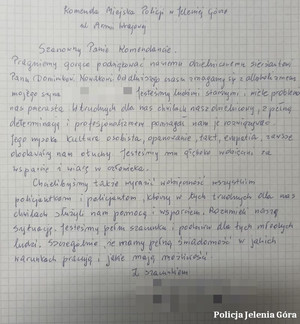 Komenda Miejska Policji w Jeleniej Górze
ul. Armii Krajowej
Szanowny Panie Komendancie.
Pragniemy gorąco podziękować naszemu dzielnicowemu sierżantowi
Panu Dominikowi Nowakowi. Od dłuższego czasu zmagamy się z alkoholizmem
mojego syna Jesteśmy ludźmi starszymi i wiele problemów
nas przerasta. W trudnych dla nas chwilach nasz dzielnicowy, z pełną
determinacją i profesjonalizmem pomagał nam je rozwiązywać.
Jego wysoka kultura osobista, opanowanie, takt, empatia, zawsze
dodawały nam otuchy. Jesteśmy mu głęboko wdzięczni za
wsparcie i wiarę w człowieka.
Chcielibyśmy także wyrazić wdzięczność wszystkim
policjantkom i policjantom, którzy w tych trudnych dla nas
chwilach służyli nam pomocą i wsparciem. Rozumieli naszą
sytuację. Jesteśmy pełni szacunku i podziwu dla tych młodych
ludzi. Szczególnie, że mamy pełną świadomość w jakich
warunkach pracują i jakie mają możliwości.
Z szacunkiem
Policja Jelenia Góra